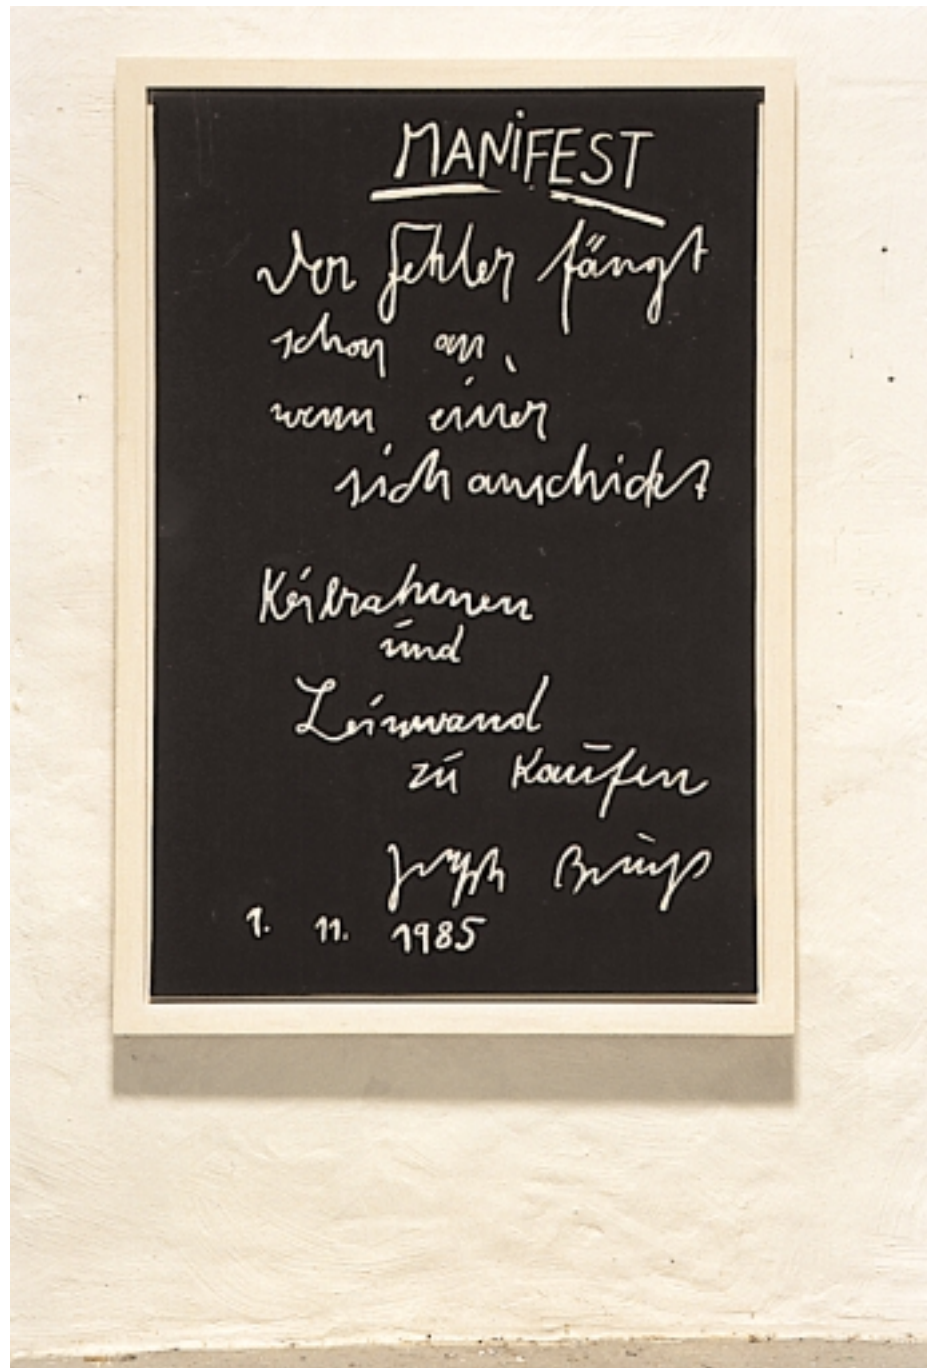 MANIFEST
Der Fehler fängt
schon an,
wenn einer
sich anschickt
Keilrahmen
und
Leinwand
zu kaufen
Joseph Beuys
1. 11. 1985